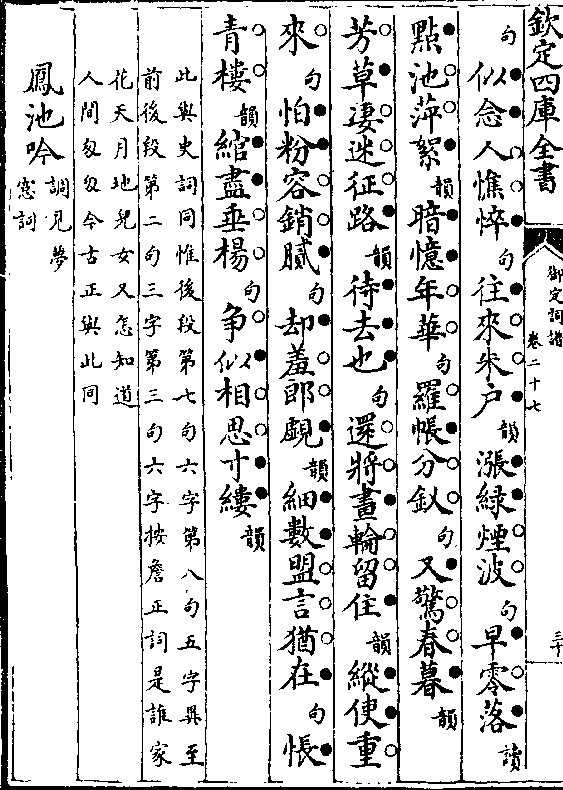 欽定四庫全書
御定詞譜
卷二十七
三十
句似念人憔悴句往來朱户韻漲綠煙波句早零落讀
點池萍絮韻暗憶年華句羅帳分釵句又驚春暮韻
芳草凄迷征路韻待去也句還將畫輪留住韻縱使重
來句怕粉容銷膩句却羞郎覷韻細數盟言猶在句悵
青樓韻綰盡垂楊句争似相思寸縷韻
此與史詞同惟後段第七句六字第八句五字異至
前後段第二句三字第三句六字按詹正詞是誰家
花天月地兒女又怎知道
人間匆匆今古正與此同
鳳池吟調見夢
窻詞